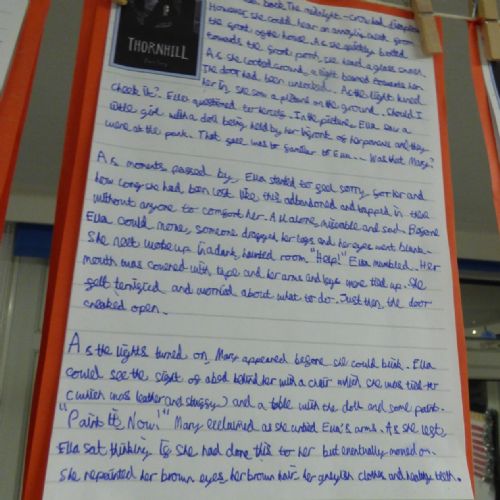 THORNHILL
back. The midnight-crow had disappeared
However, she could hear an annoying creak from
the front of the house. As she quickly bolted
towards the front porch, she heard a glass smash.
As she looked around, a light beamed towards her.
The door had been unlocked. As the light hurted
her eyes, she saw a picture on the ground. Should I
check it?. Ella questioned to herself. In the picture, Ella saw a
little girl with a doll being held by her in front of her parents and they
were at the park. That face was to familiar to Ella... Was that Mary?
As moments passed by, Ella started to feel sorry for her and
how long she had been lost like this, abandoned and trapped in there
without anyone to comfort her. All alone, miserable and sad. Before
Ella could move, someone dragged her legs and her eyes went blank.
She next woke up in a dark, haunted room. "Help!" Ella mumbled. Her
mouth was covered with tape and her arms and legs were tied up. She
felt terrified and worried about what to do. Just then, the door
creaked open.
As the lights turned on, Mary appeared before she could blink. Ella
could see the sight of a bed behind her with a chair which she was tied to
(which was leather and stuffy) and a table with the doll and some paint.
"Paint it, Now!" Mary exclaimed as she untied Ella's arms. As she left,
Ella sat thinking if she had done this to her but eventually moved on.
She repainted her brown eyes, her brown hair, her greyish clothes and healthy teeth.